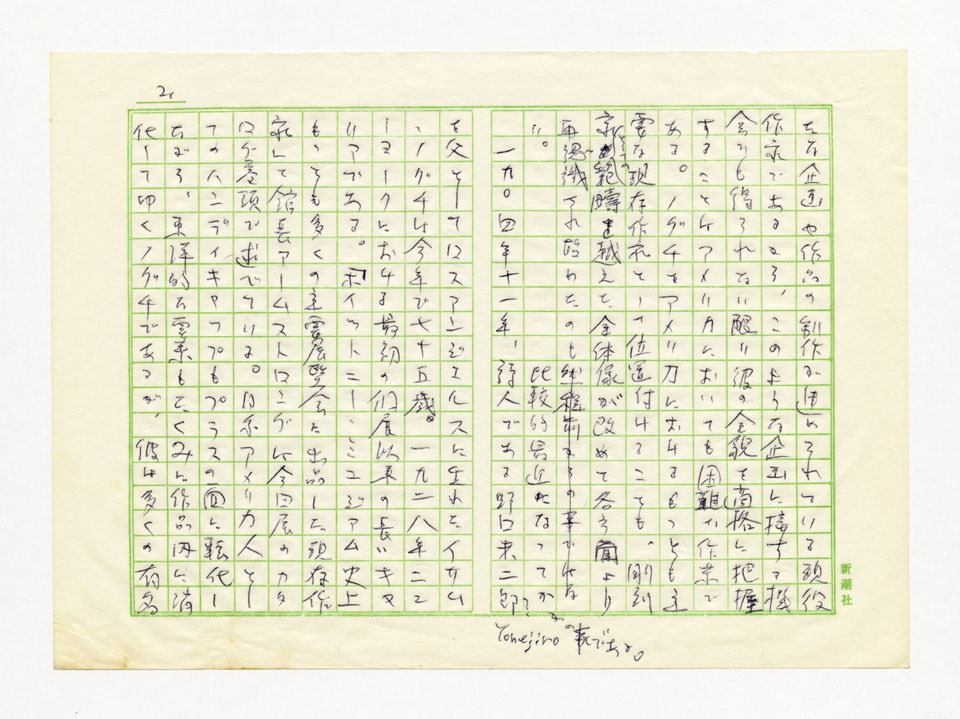 2.
たな企画や作品の制作が進められている現役
作家であるから、このような企画に接する機
会でも得られない限り彼の全貌を適格に把握
することはアメリカにおいても困難な作業で
ある。ノグチをアメリカにおけるもっとも重
要な現存作家として位置付けることも、彫刻
家の範疇を越えた全体像が改めて各方面より
再認識され始めたのも
比較的最近になってか
い。
一九〇四年十一年、詩人である野口米二郎
Yonejiro の事である。
を父としてロスアンジェルスに生れたイサム
・ノグチは今年で七十五歳。一九二八年ニュ
ーヨークにおける最初の個展以来の長いキャ
リアである。「ホイットニー・ミュジアム史上
もっとも多くの主要展覧会に出品した現存作
家」と館長アームストロングは今回展のカタ
ログ巻頭で述べている。日系アメリカ人とし
てのハンディキャップもプラスの面に転化し
ながら、東洋的な要素もたくみに作品内に消
化して行くノグチであるが、彼は多くの有名
新潮社